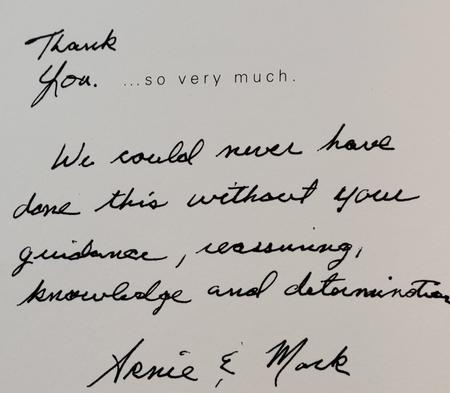 Thank
You. ...so very much.
We could never have
done this without your
guidance, reassuring,
knowledge and determination
Arnie & Mark